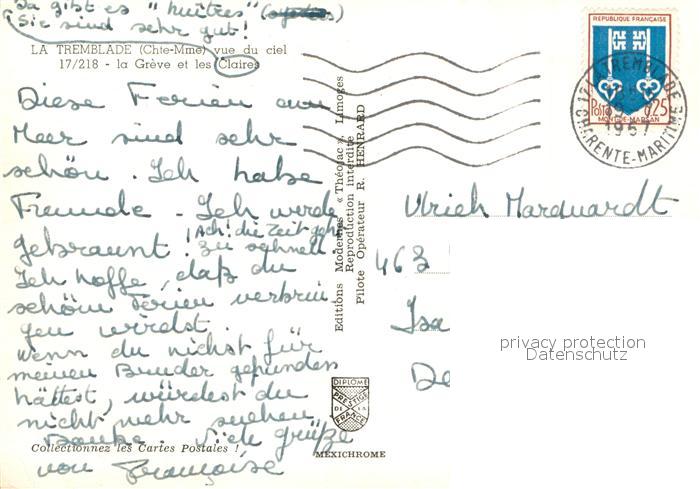 Da gibt es "huîtres" (
Sie sind sehr gut!
LA TREMBLADE (Chte-Mme) vue du ciel
17/218 - la Grève et les Claires
Diese Ferien am
Meer sind sehr
schön. Ich habe
Freunde - Ich werde
gebräunt! Ach! die Zeit geht
zu schnell
Ich hoffe, daß du
schöne Ferien verbrin
gen wirdst.
Wenn du nichst für
meinen Bruder gefunden
hättest, würdest du
nicht mehr suchen
Danke. Viele grüße
von Françoise
Collectionnez les Cartes Postales !
Editions Modernes « Théojac », Limoges
Reproduction interdite
Pilote Opérateur R. HENRARD
DIPLOME
PRESTIGE
DE LA
FRANCE
MEXICHROME
REPUBLIQUE FRANÇAISE
Postes 0,25
MONT-DE-MARSAN
17 LA TREMBLADE
1967
CHARENTE-MARITIME
Ulrich Marquardt
463
Isa
De
privacy protection
Datenschutz